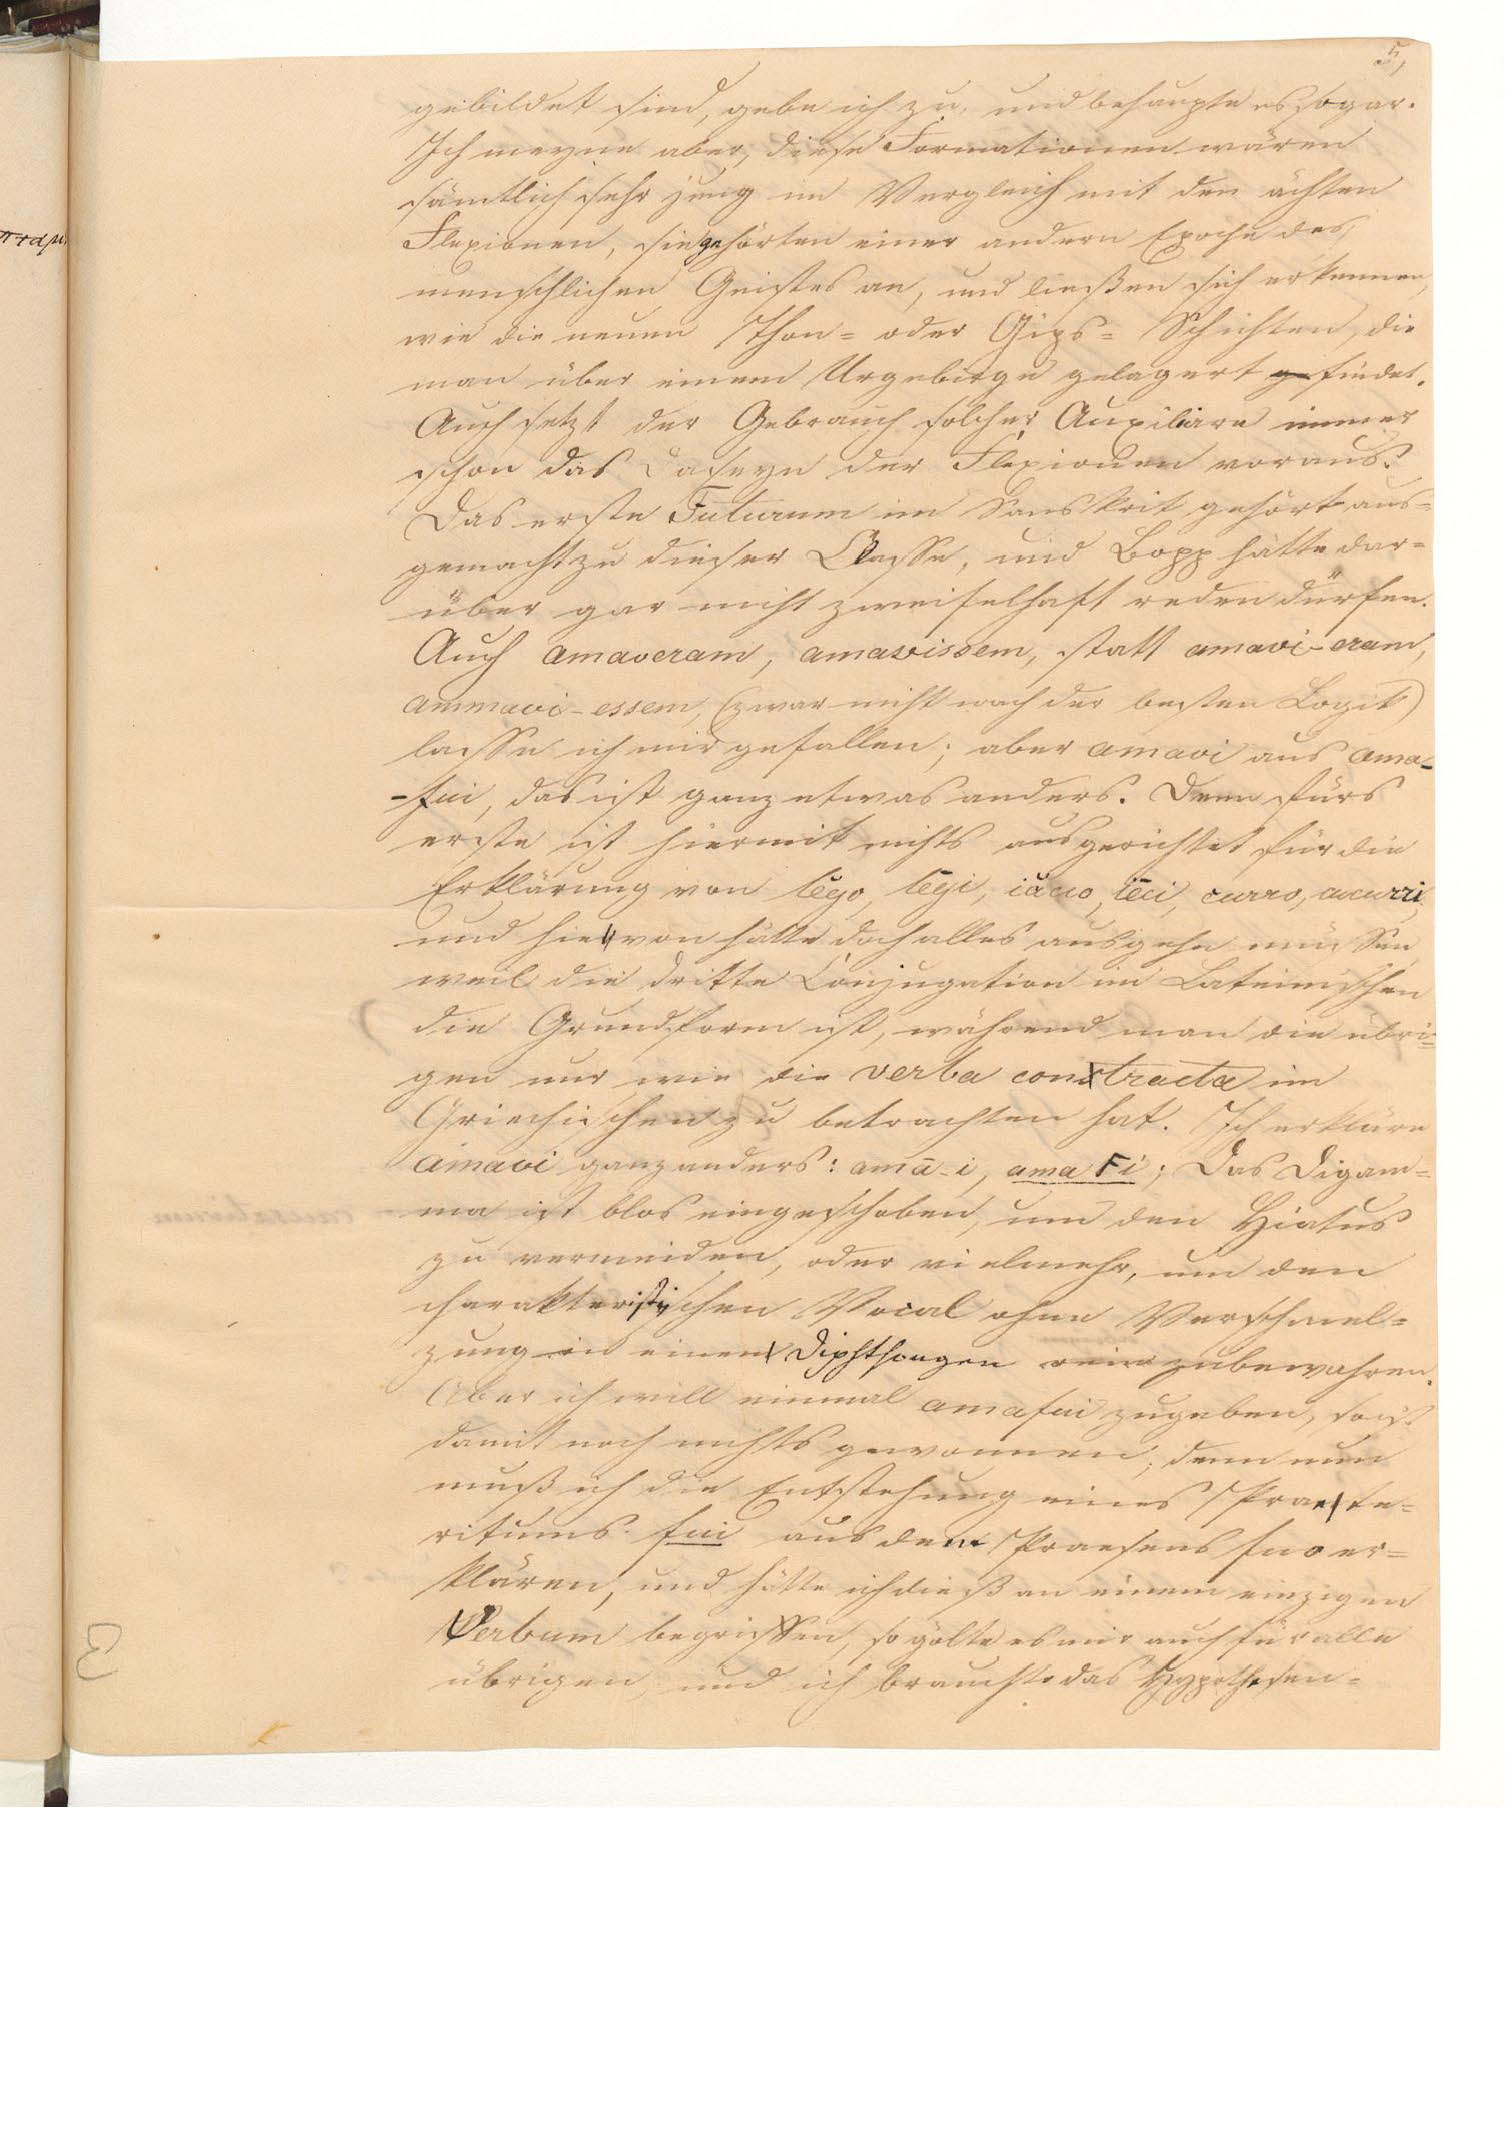 5,
gebildet sind, gebe ich zu, und behaupte es sogar.
Ich meyne aber, diese Formationen wären
sämtlich sehr jung im Vergleich mit den ächten
Flexionen, sie gehörten einer andern Epoche des
menschlichen Geistes an, und ließen sich erkennen,
wie die neuen Thon- oder Gips-Schichten, die
man über einem Urgebirge gelagert findet.
Auch setzt der Gebrauch solcher Auxiliare immer
schon das Daseyn der Flexionen voraus.
Das erste Futurum im Sanskrit gehört aus=
gemacht zu dieser Classe, und Bopp hätte dar=
über gar nicht zweifelhaft reden dürfen.
Auch amaveram, amavissem, statt amavi-eram,
ammavi-essem, (zwar nicht nach der besten Logik)
lasse ich mir gefallen; aber amavi aus ama-
-fui, das ist ganz etwas anders. Denn fürs
erste ist hiermit nichts ausgerichtet für die
Erklärung von lĕgo, lēgi, iăcio, iēci, curro, cucurri,
und hievon hätte doch alles ausgehn müssen,
weil die dritte Conjugation im Lateinischen
die Grundform ist, während man die übri=
gen nur wie die verba contracta im
Griechischen zu betrachten hat. Ich erkläre
amavi ganz anders: amā-i, ama F i; Das Digam=
ma ist blos eingeschoben, um den Hiatus
zu vermeiden, oder vielmehr, um den
charakteristischen Vocal ohne Verschmel=
zung in einen Diphthongen rein zu bewahren.
Aber ich will einmal amafui zugeben, so ist
damit noch nichts gewonnen; denn nun
muß ich die Entstehung eines Praete=
ritums fui aus dem Praesens fuo er=
klären, und hätte ich dieß an einem einzigen
Verbum begriffen, so gölte es mir auch für alle
übrigen, und ich brauchte das Hypothesen=
3